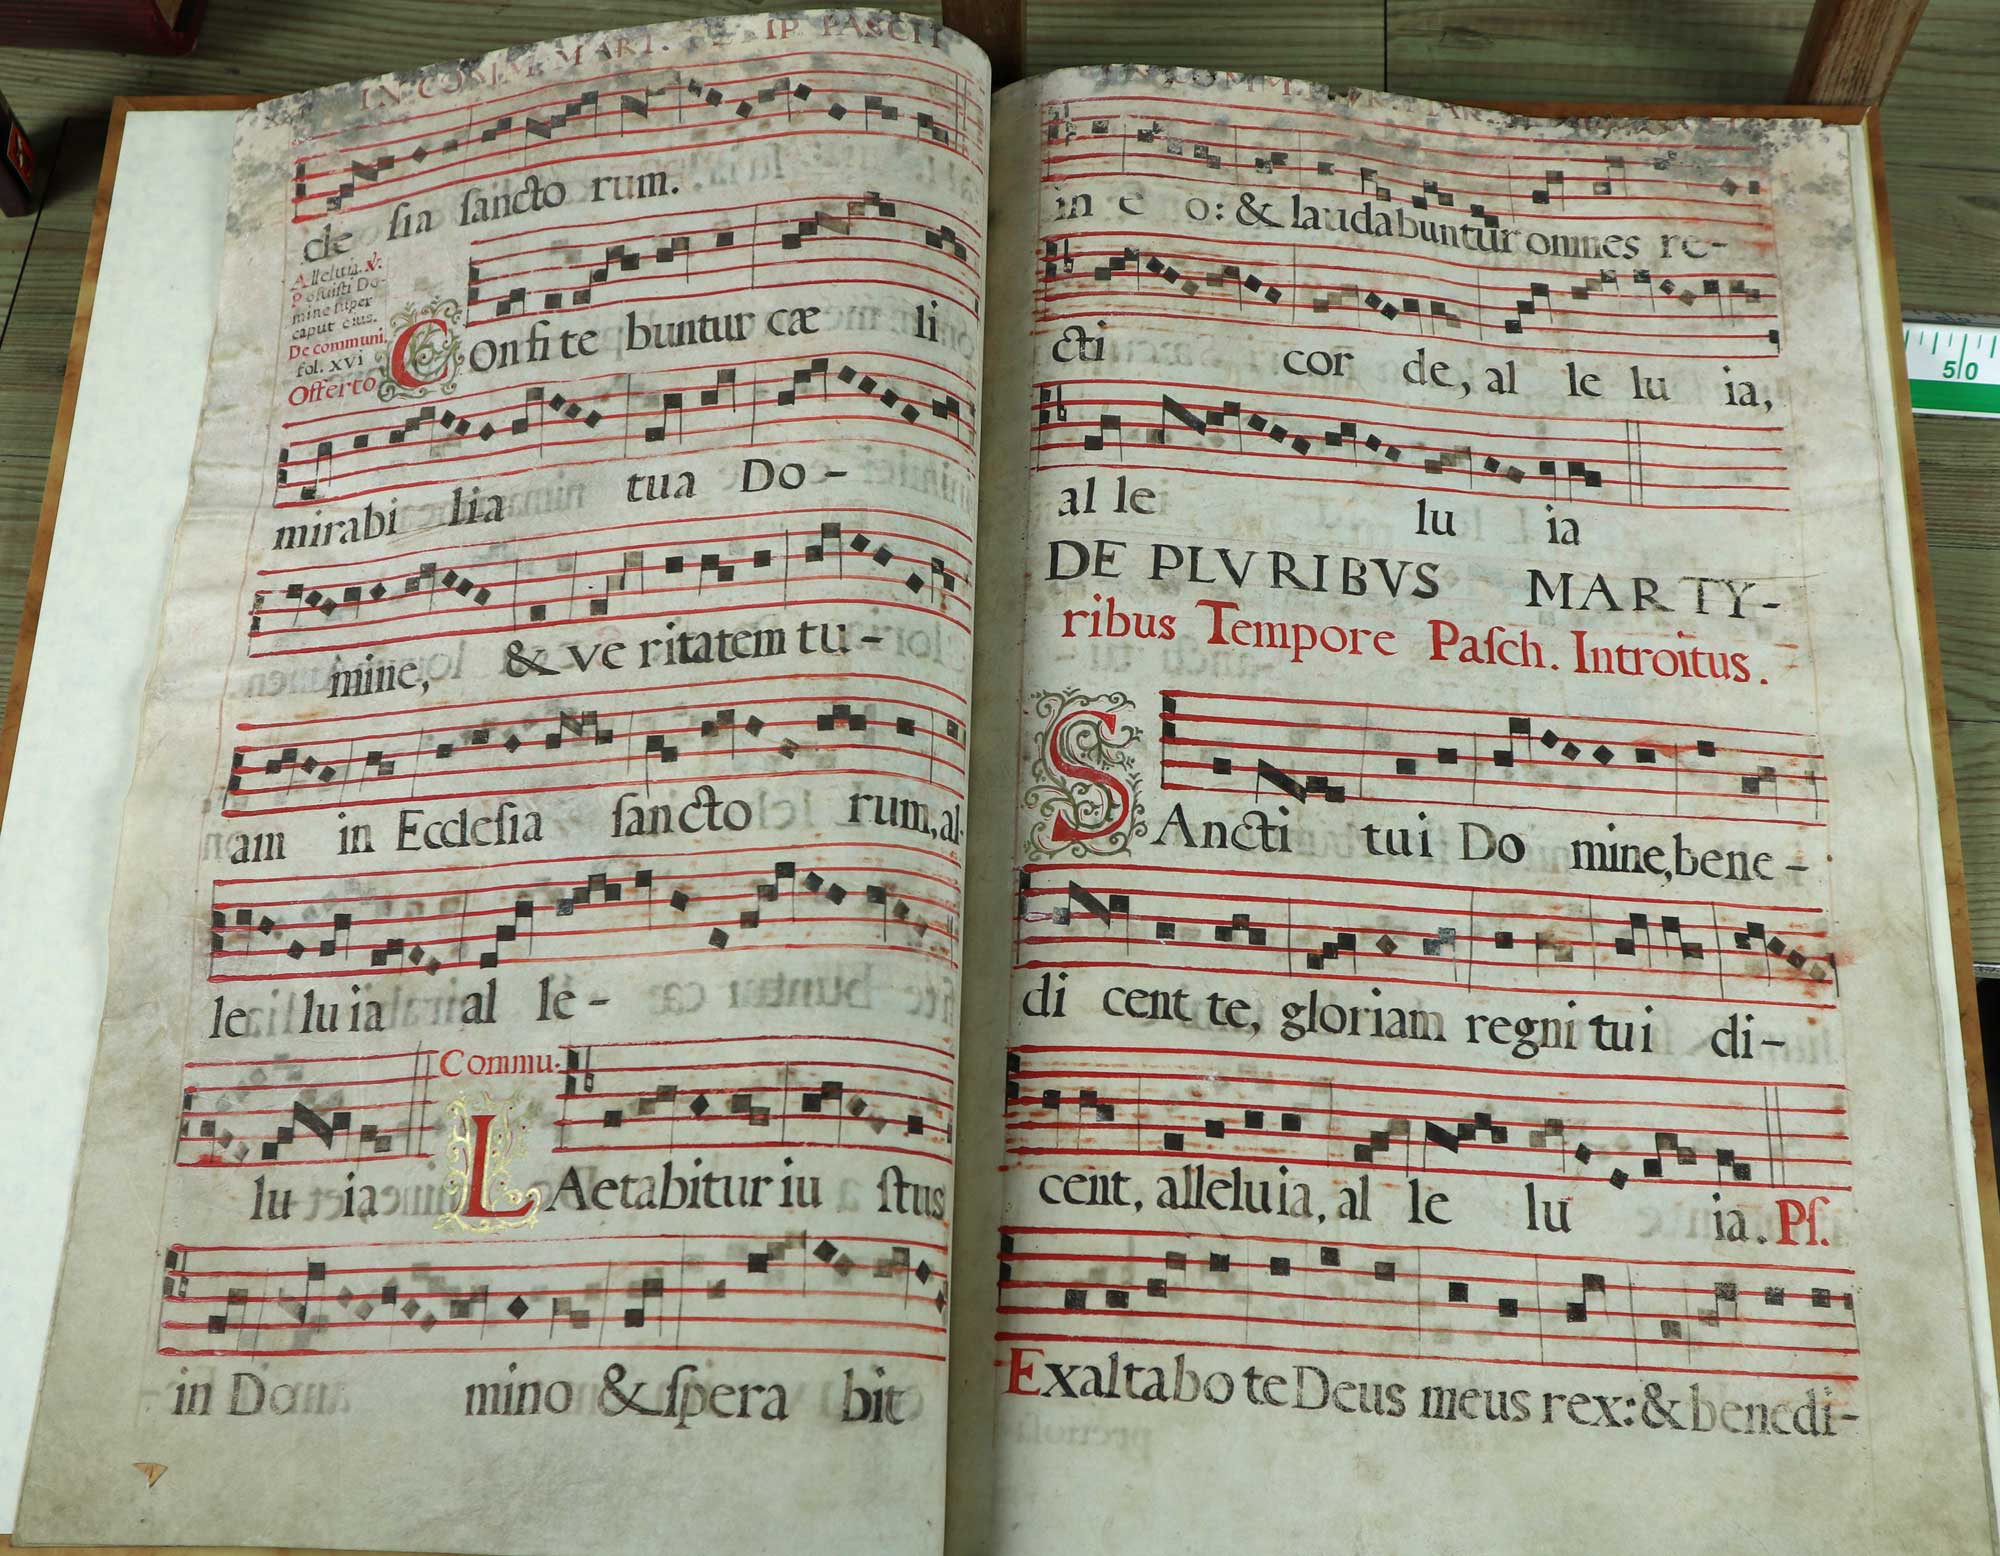 IN COMM. MART. TEMP. PASCH
cle ſia ſancto rum.
Alleluia. ℣.
Poſuiſti Do-
mine ſuper
caput eius.
De communi,
fol. XVI
Offerto
COnfite buntur cæ li
mirabi lia tua Do-
mine, & ve ritatem tu-
am in Eccleſia ſancto rum, al-
le lu ia al le-
lu ia
Commu.
LAetabitur iu ſtus
in Do mino & ſpera bit
IN COMM.
in e o: & laudabuntur omnes re-
cti cor de, al le lu ia,
al le lu ia
DE PLVRIBVS MARTY-
ribus Tempore Paſch. Introitus.
SAncti tui Do mine, bene-
di cent te, gloriam regni tui di-
cent, alleluia, al le lu ia. Pſ.
Exaltabo te Deus meus rex: & benedi-
50